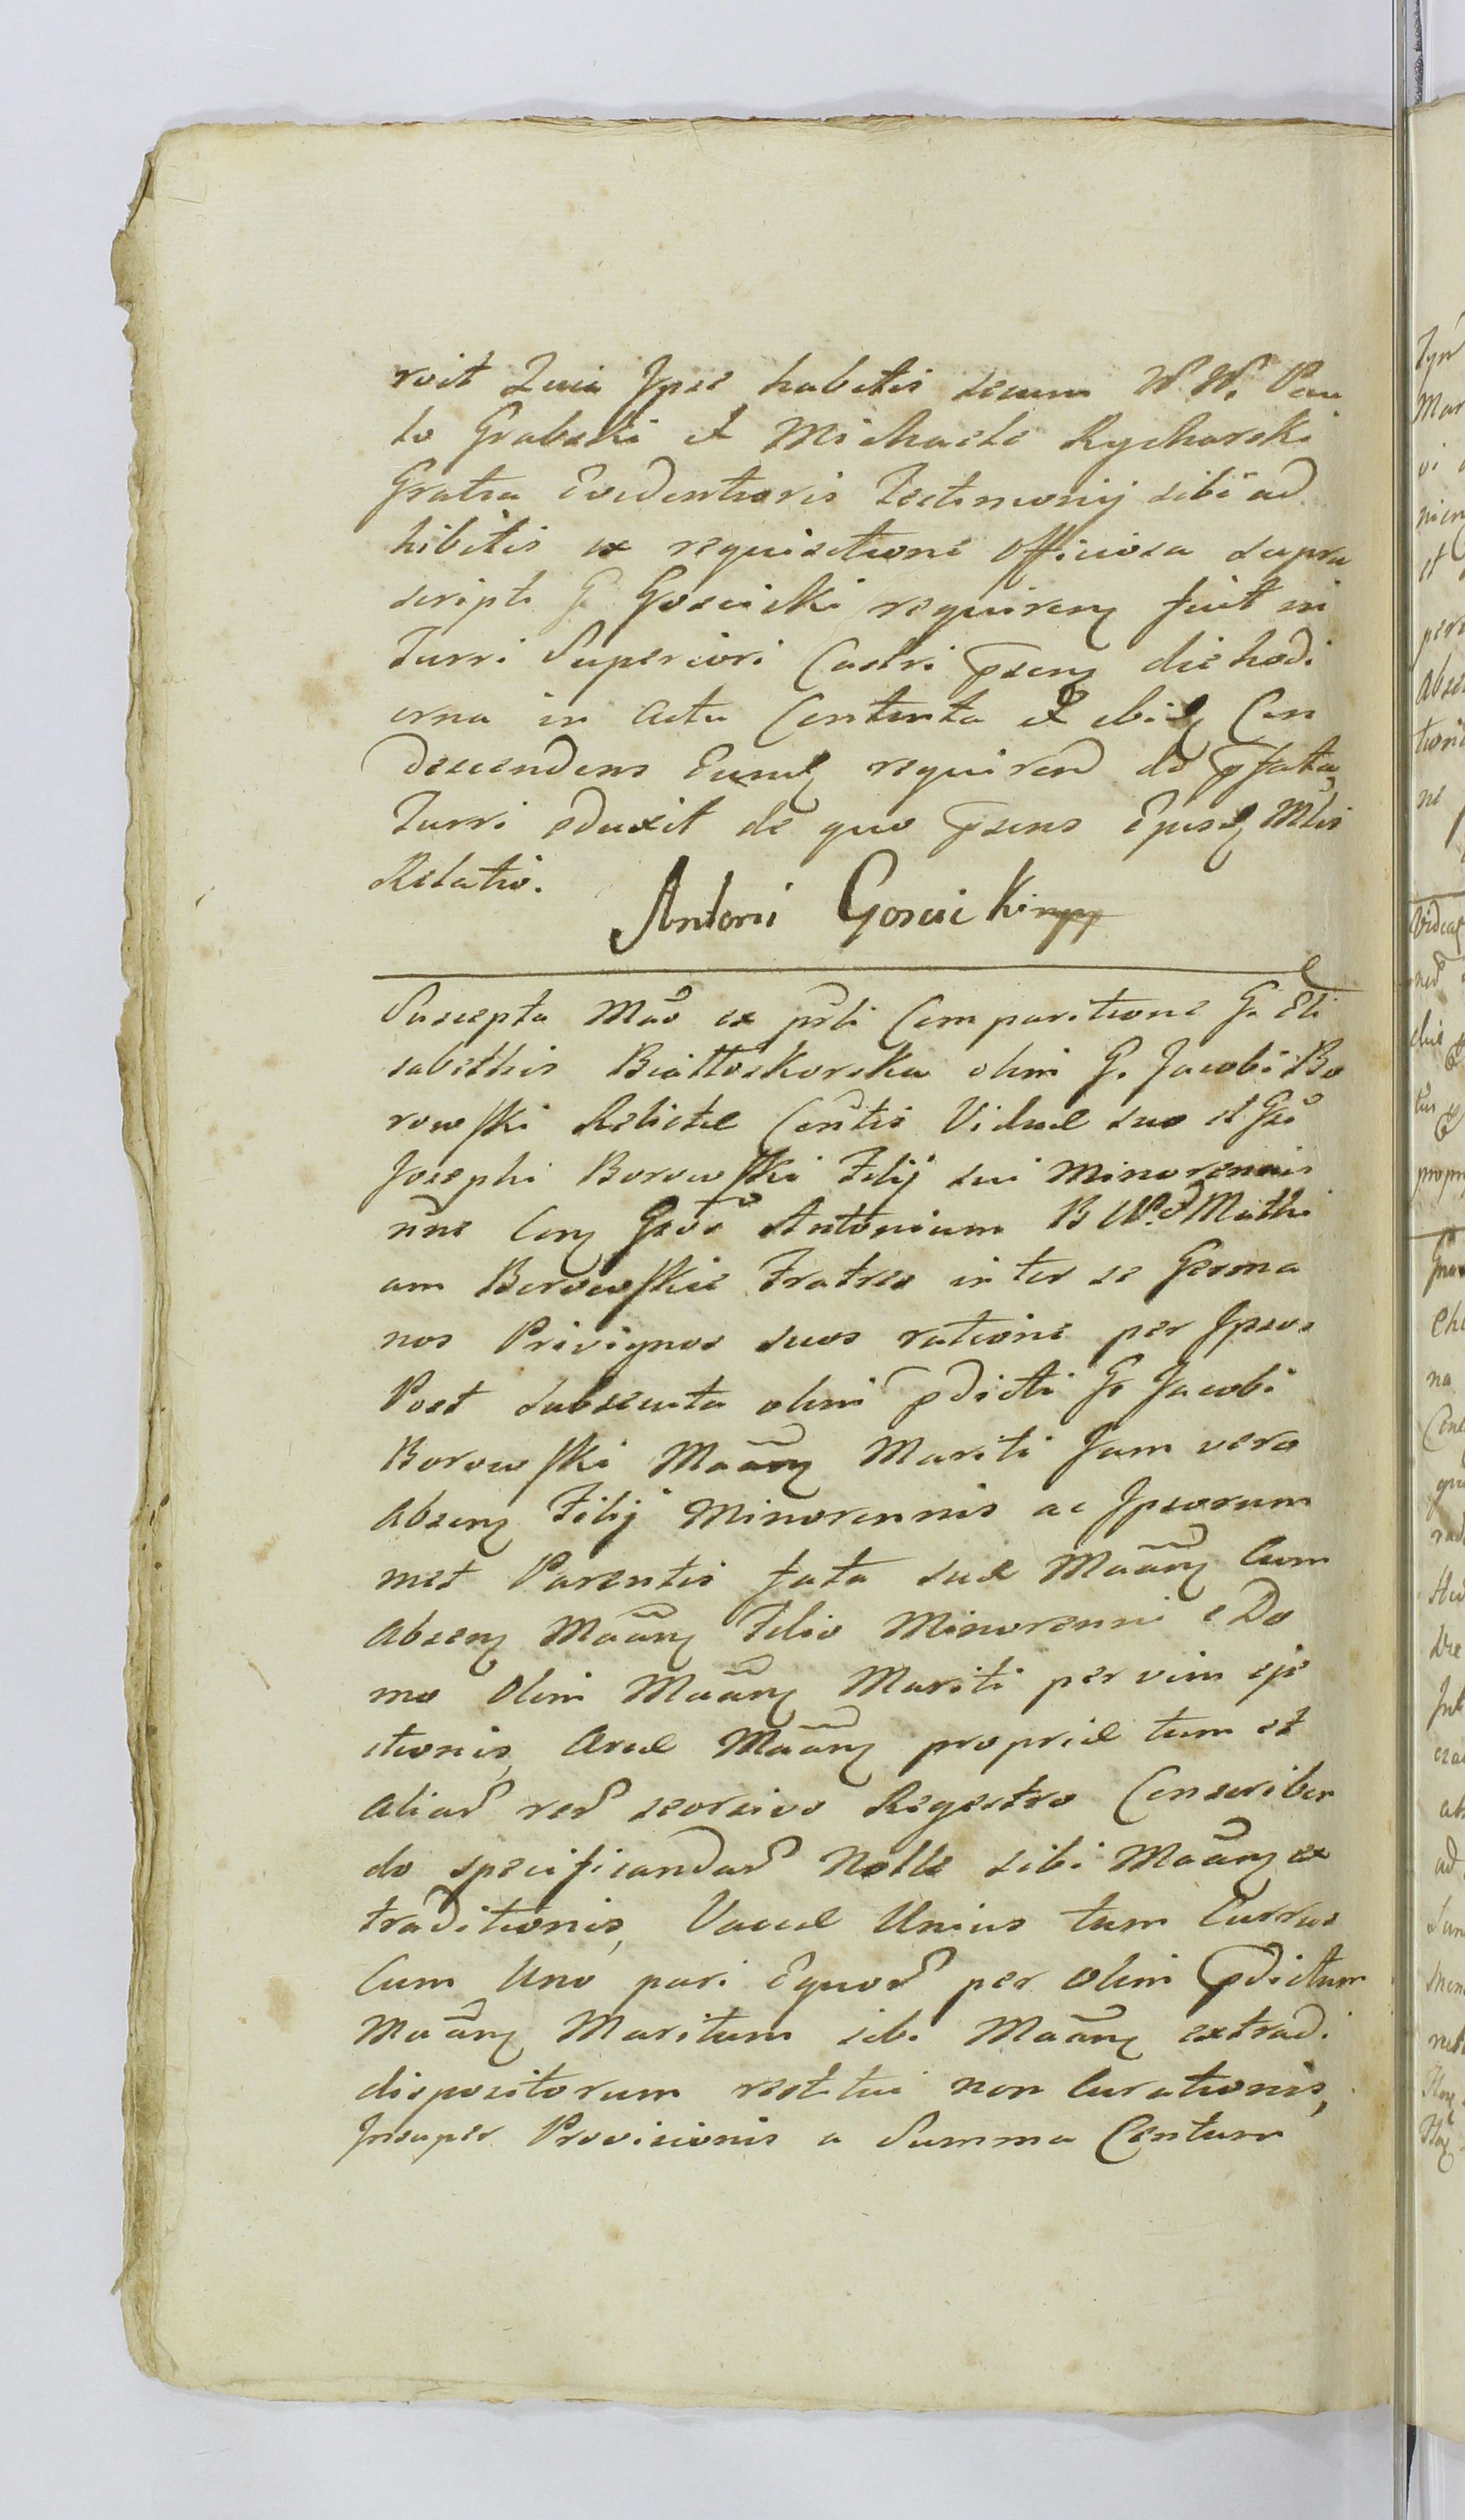 roit Quia Ipse habitis secum W. W. Pau
lo Grabski et Michaele Rycharski
Gratia Evidentioris Testimonij sibi ad
hibitis ex requisitione officiosa supra
scripti G. Gosciski requirens fuit in
Turri Superiori Castri psens die hodi
erna in actu Contenta et ibidq Con
descendens Eundq requirend de pfata
Turri eduxit de quo psens Ejusdq Mlis
Relatio.
Antoni Goscicki mpp
Suscepta Mao ex prli Comparitione G. Eli
sabethis Białłoskorska olim G. Jacobi Bo
rowski Relictæ Contis Viduæ suo et Gsi
Josephi Borowski Filij sui Minorennis
nne Con Gsos Antonium B W. Mathi
am Borowskie Fratres inter se Germa
nos Privignos suos ratione per Ipsos
Post subsecuta olim pdicti G. Jacobi
Borowski Maãnq Mariti Jam vero
absenq Filij Minorennis ac Ipsorum
met Parentis fata suæ Maãnq Cum
absenq Maãnq Filio Minorenni e Do
mo Olim Maãnq Mariti per vim eje
ctionis, Arcæ Maãnq propriæ tum et
aliar rer seorsivo Regestro Conscriben
do specificandar Nolle sibi Maãnq ex
traditionis, Vaccæ Unius tum Currus
Cum Uno pari Equor per olim pdictum
Maãnq Maritum sibi Maãnq extradi
dispositorum restitui non Curationis,
Insuper Provisionis a Summa Centum